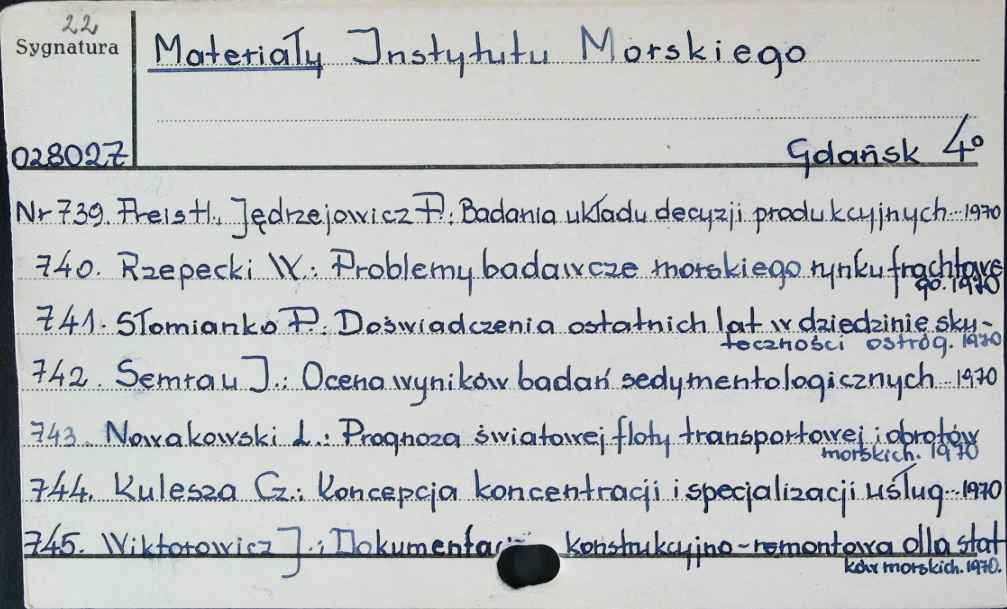 22
Sygnatura
Materiały Instytutu Morskiego
028027
Gdańsk 4°
Nr 739. Freist H., Jędrzejowicz P.: Badania układu decyzji produkcyjnych... 1970
740. Rzepecki W.: Problemy badawcze morskiego rynku frachtowe
go. 1970
741. Słomianko P.: Doświadczenia ostatnich lat w dziedzinie sku-
teczności ostróg. 1970
742. Semrau J.: Ocena wyników badań sedymentologicznych... 1970
743. Nowakowski L.: Prognoza światowej floty transportowej i obrotów
morskich. 1970
744. Kulesza Cz.: Koncepcja koncentracji i specjalizacji usług... 1970
745. Wiktorowicz J.: Dokumentacja konstrukcyjno-remontowa dla stat
ków morskich. 1970.